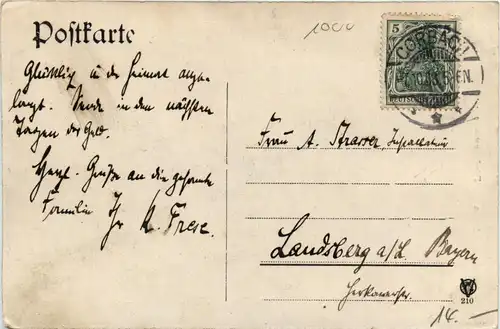 Postkarte
1000
5
CORBACH
Glücklich in der Heimat ange-
langt. Sende in den nächsten
Tagen das Geld.
Herzl. Grüße an die gesamte
Familie Ihr K. Frese.
Frau A. Strasser,
Landsberg a/L. Bayern
210
14.-